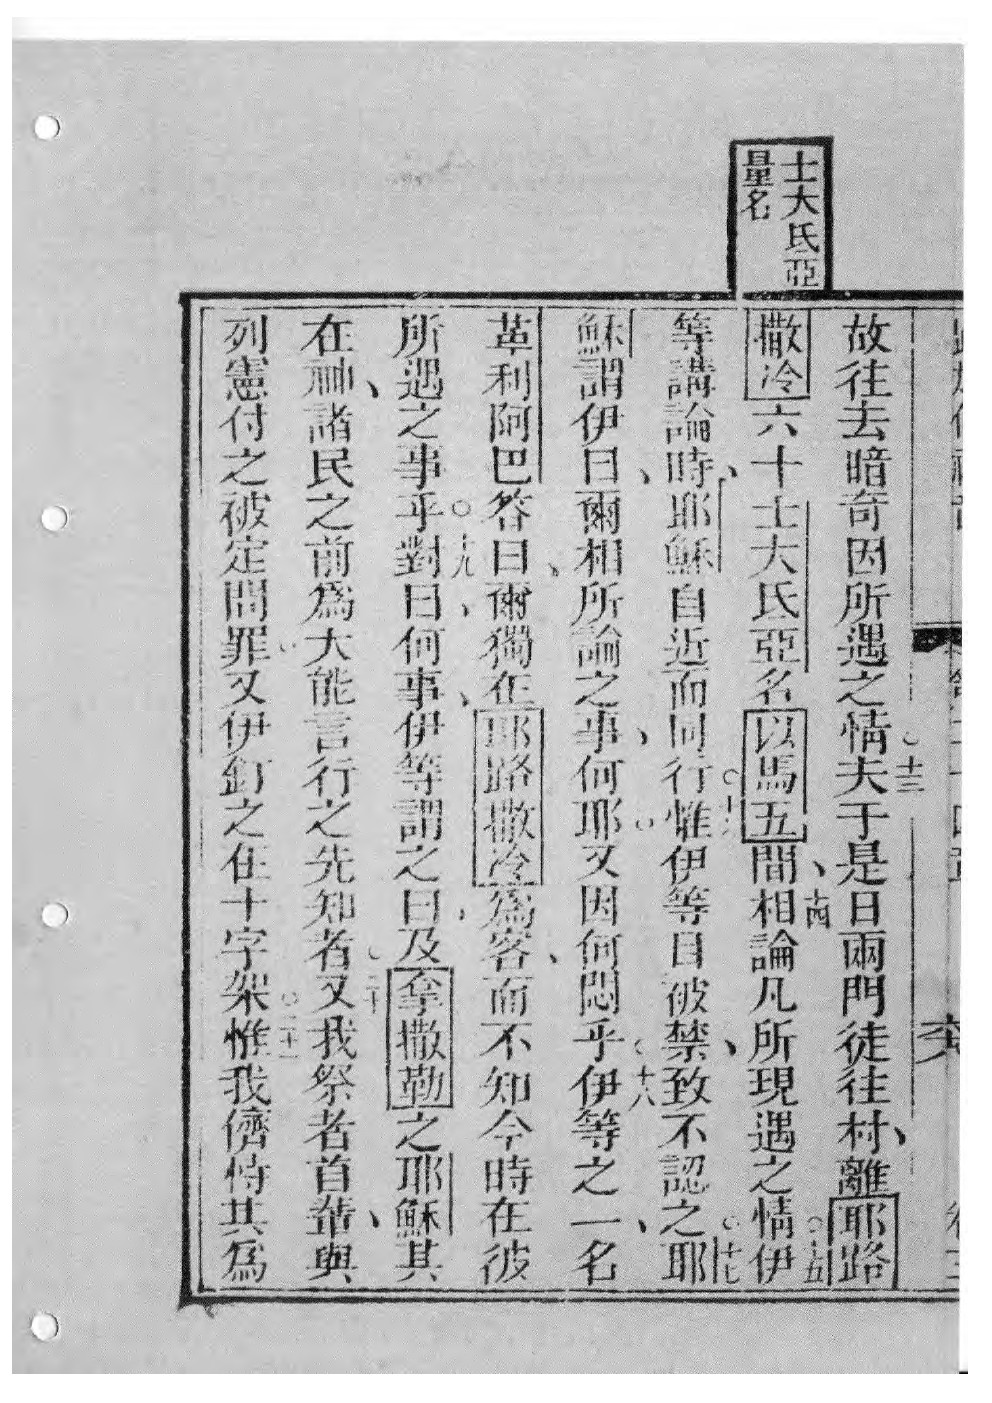 士大氐亞
量名
故往去暗奇因所遇之情夫○十三于是日兩門徒往村、離耶路
撒冷六十士大氐亞名以馬五、間十四相論凡所現遇之情○十五伊
等講論時、耶穌自近而同行○惟伊等目被禁、致不認之○十七耶
穌謂伊曰、爾相所論之事、何耶○又因何悶乎○十八伊等之一、名
革利阿巴答曰、爾獨在耶路撒冷為客、而不知今時在彼
所遇之事乎○十九對曰、何事、伊等謂之曰、及拿撒勒之耶穌其
在神、諸民之前為大能言行之先知者○二十又我祭者首輩、與
列憲付之被定問罪、又伊釘之在十字架○二十一惟我儕恃其為